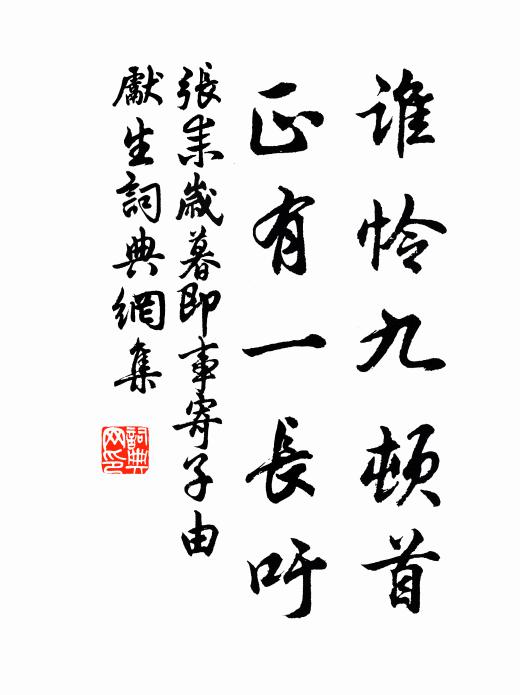 誰怜九頓首
正有一長吁
張耒歲暮即事寄子由
獻生詞典網集
詞典
网印